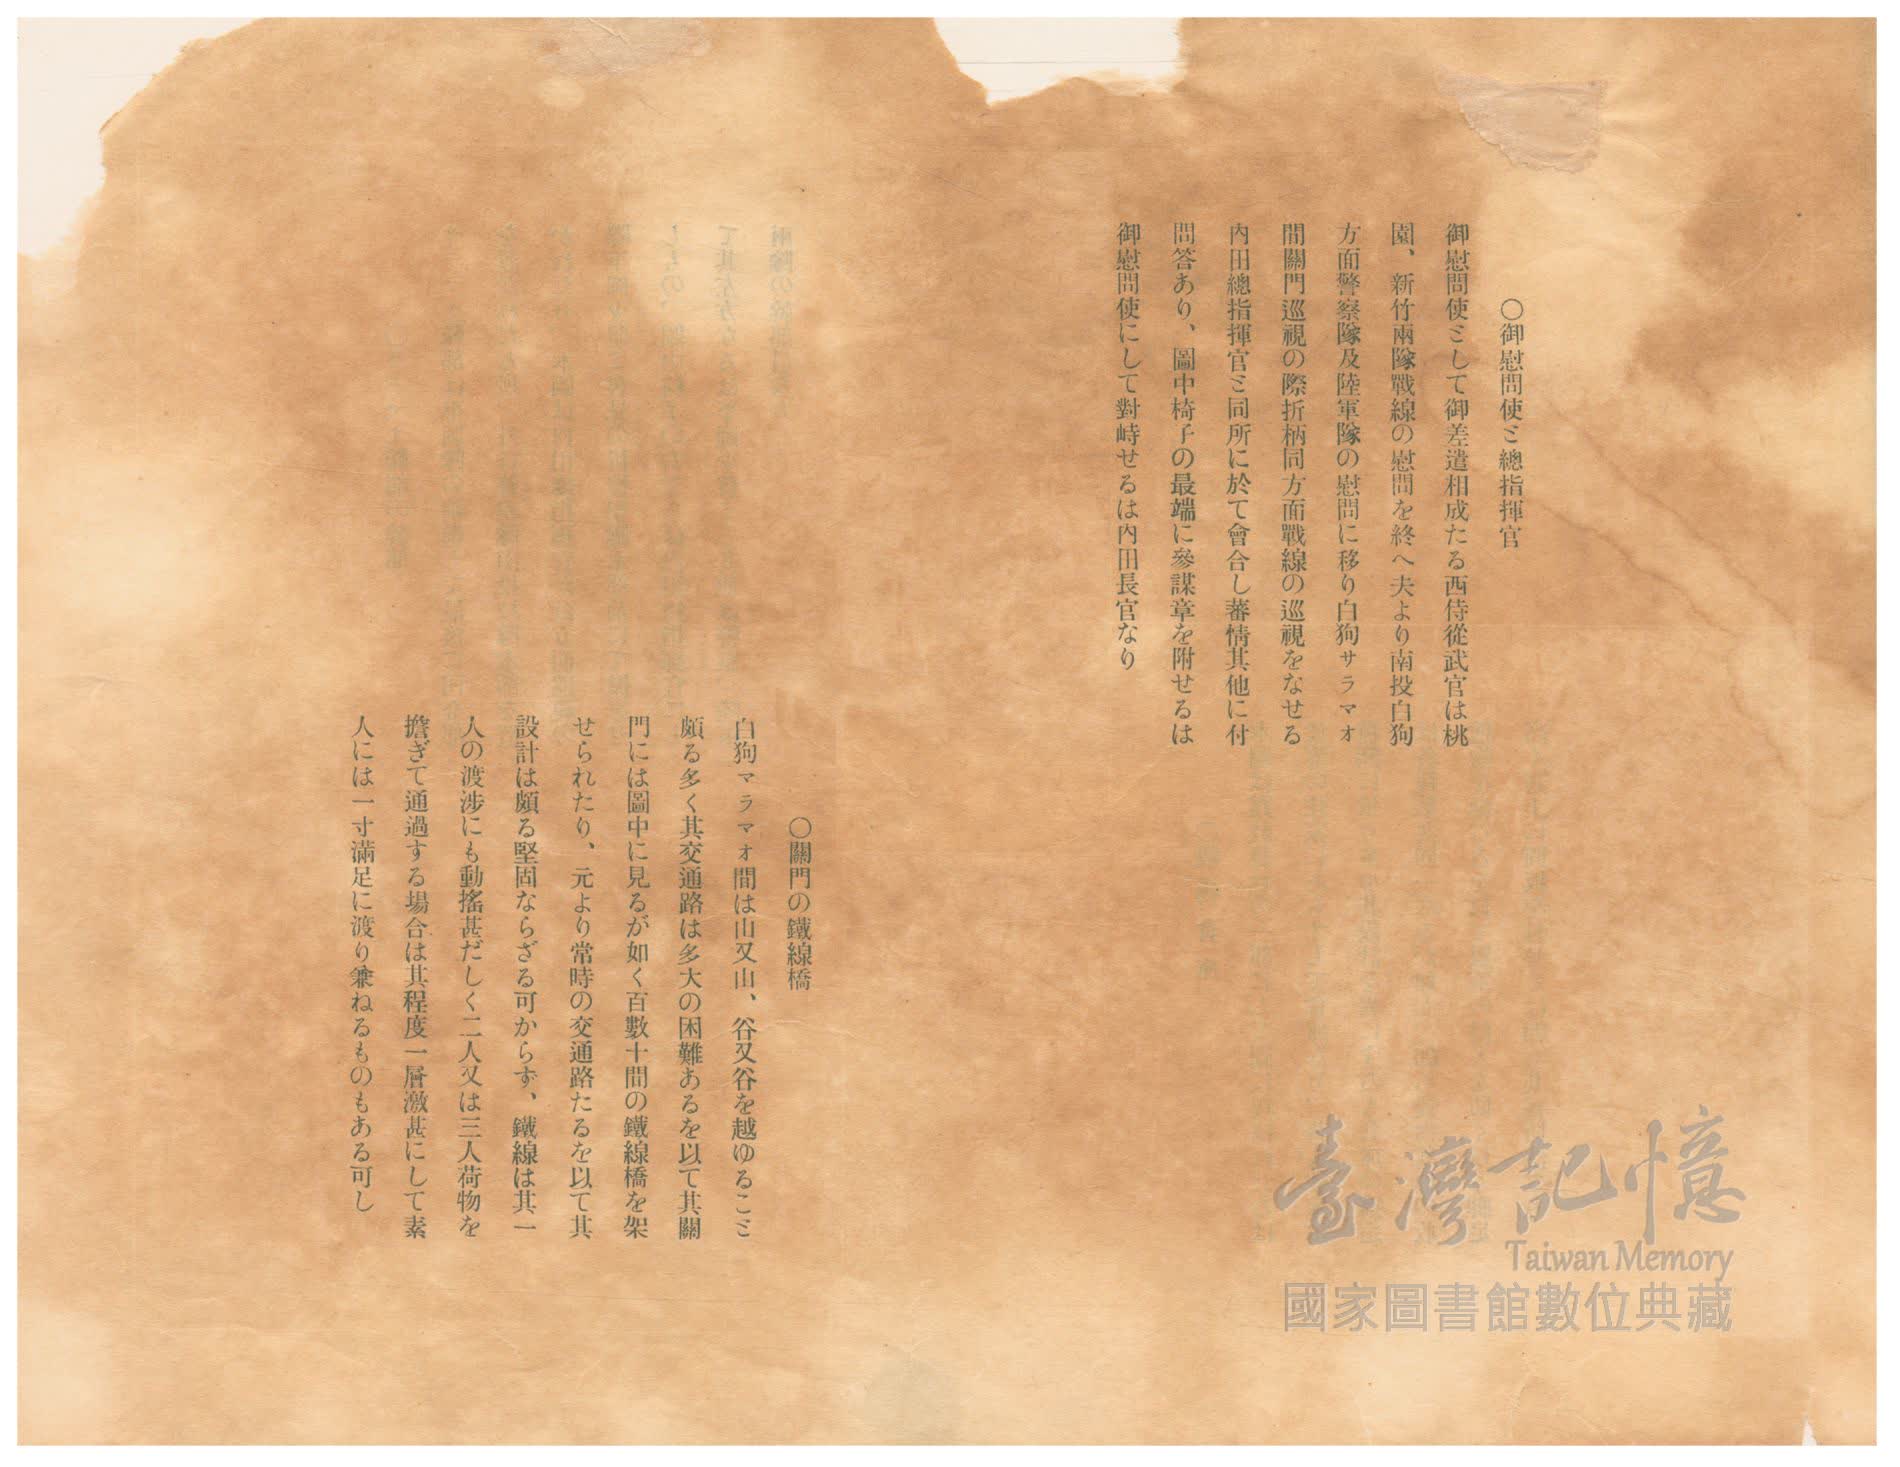 ○御慰問使と總指揮官
御慰問使として御差遣相成たる西侍從武官は桃
園、新竹兩隊戰線の慰問を終へ夫より南投白狗
方面警察隊及陸軍隊の慰問に移り白狗サラマオ
間關門巡視の際折柄同方面戰線の巡視をなせる
內田總指揮官と同所に於て會合し蕃情其他に付
問答あり、圖中椅子の最端に參謀章を附せるは
御慰問使にして對峙せるは內田長官なり
○關門の鐵線橋
白狗マラマオ間は山又山、谷又谷を越ゆること
頗る多く其交通路は多大の困難あるを以て其關
門には圖中に見るが如く百數十間の鐵線橋を架
せられたり、元より常時の交通路たるを以て其
設計は頗る堅固ならざる可からず、鐵線は其一
人の渡涉にも動搖甚だしく二人又は三人荷物を
擔ぎて通過する場合は其程度一層激甚にして素
人には一寸滿足に渡り兼ねるものもある可し
臺灣記憶
Taiwan Memory
國家圖書館數位典藏